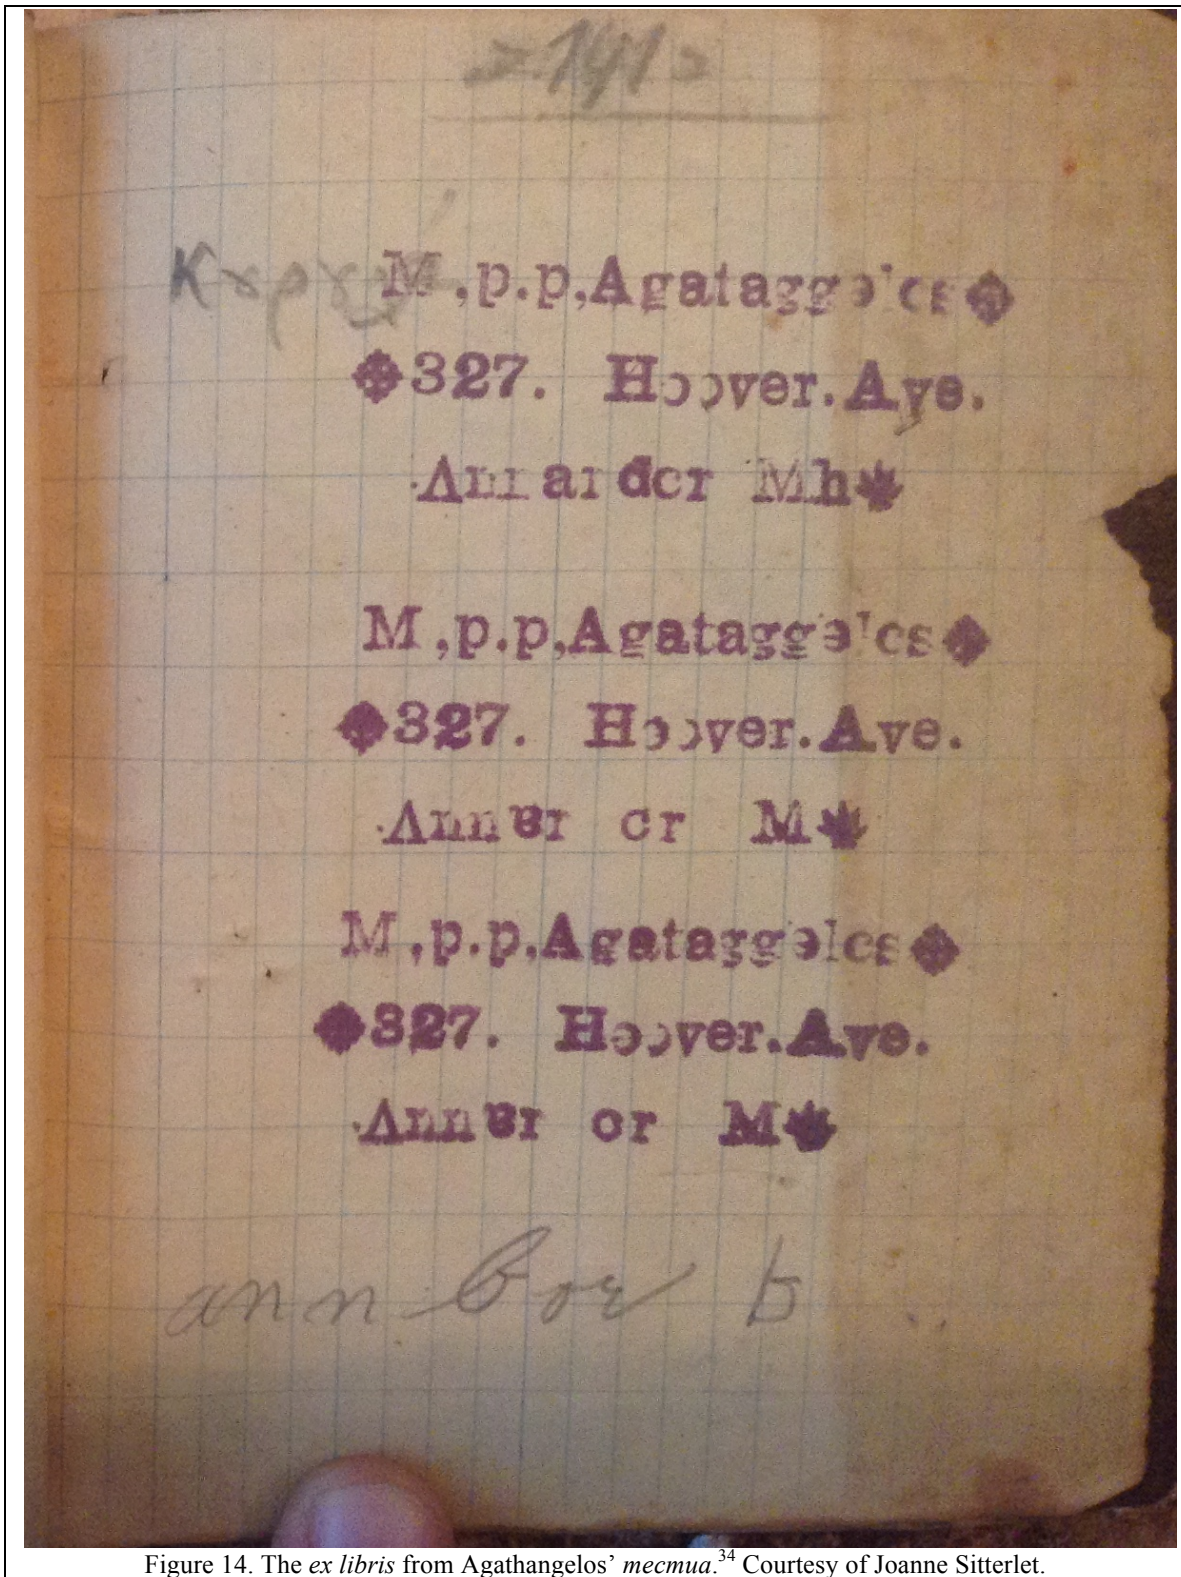 M,p.p,Agataggelcs
327. Hoover.Ave.
M,p.p,Agataggelcs
327. Hoover.Ave.
Annar or M
M,p.p,Agataggelcs
327. Hoover.Ave.
Annar or M
ann bor
Figure 14. The ex libris from Agathangelos’ mecmua.34 Courtesy of Joanne Sitterlet.